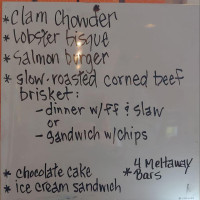 * clam chowder
* lobster bisque
* salmon burger
* slow-roasted corned beef
brisket:
- dinner w/ff & slaw
or
- sandwich w/chips
* chocolate cake
* ice cream sandwich
* 4 Meltaway
Bars